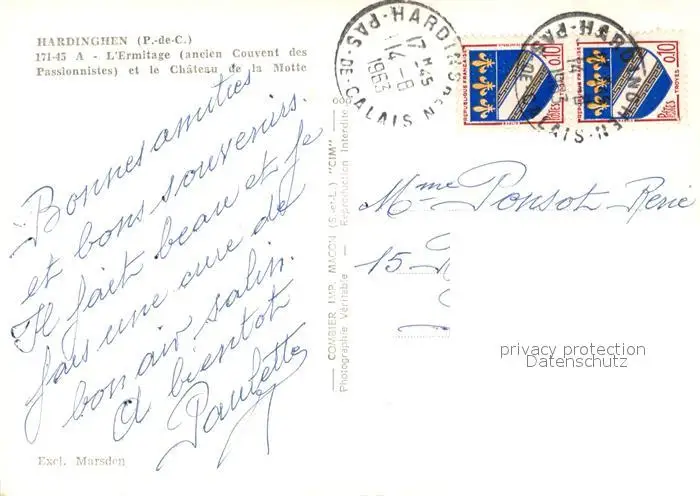 HARDINGHEN (P.-de-C.)
171-45 A - L'Ermitage (ancien Couvent des
Passionnistes) et le Château de la Motte
Bonnes amitiés
et bons souvenirs.
Il fait beau et je
fais une cure de
bon air salin.
A bientot
Paulette
Excl. Marsden
COMBIER IMP. MACON (S.-et-L.) "CIM"
Photographie Véritable - Reproduction Interdite
HARDINGHEN
17H45
14-8
1963
PAS-DE-CALAIS
REPUBLIQUE FRANÇAISE
0,10
POSTES
TROYES
REPUBLIQUE FRANÇAISE
0,10
POSTES
TROYES
Mme Ponsot René
15
privacy protection
Datenschutz